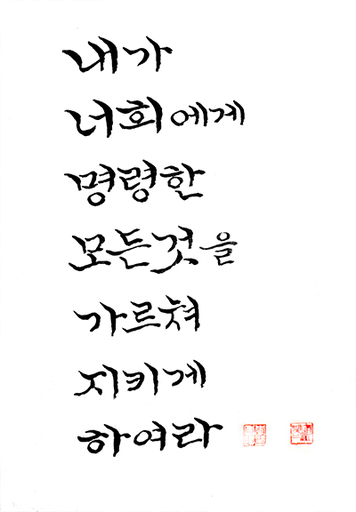 내가
너희에게
명령한
모든것을
가르쳐
지키게
하여라